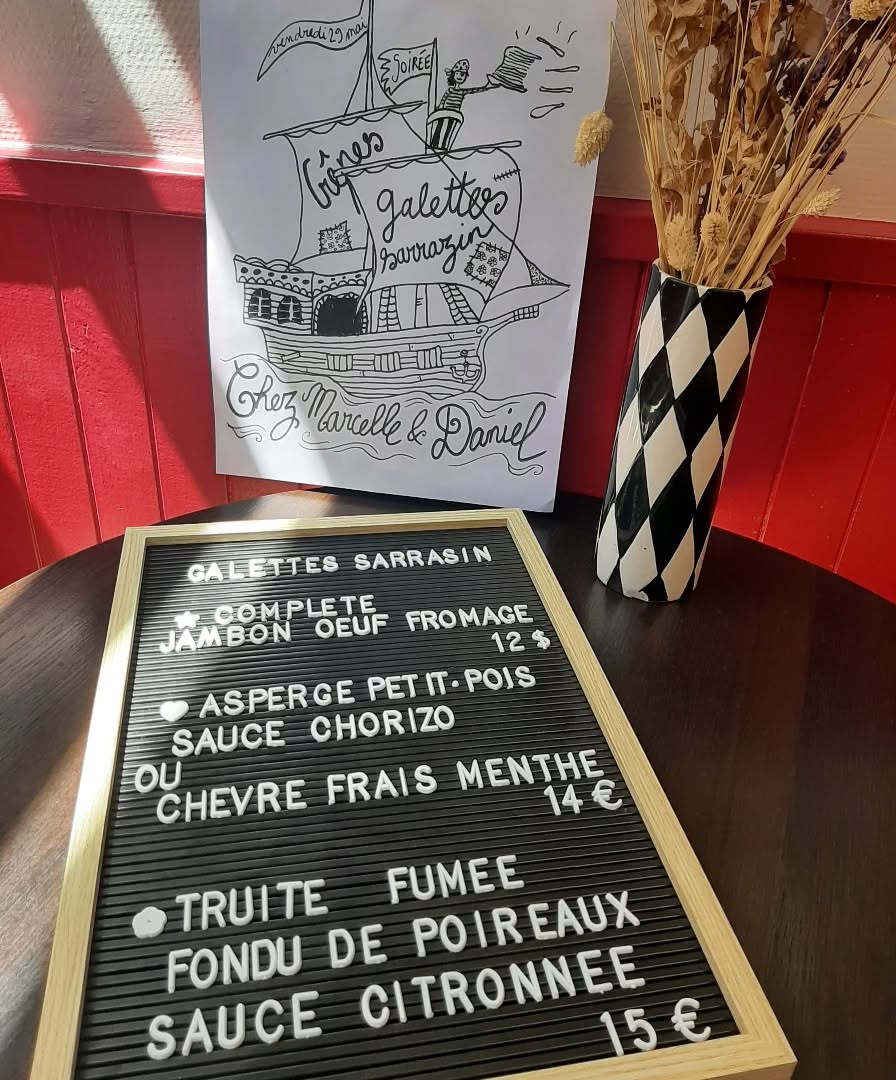 vendredi 29 mai
SOIRÉE
Crêpes
galettes
sarrazin
Chez Marcelle & Daniel
GALETTES SARRASIN
COMPLETE
JAMBON OEUF FROMAGE
12 $
ASPERGE PETIT-POIS
SAUCE CHORIZO
OU
CHEVRE FRAIS MENTHE
14 €
TRUITE FUMEE
FONDU DE POIREAUX
SAUCE CITRONNEE
15 €